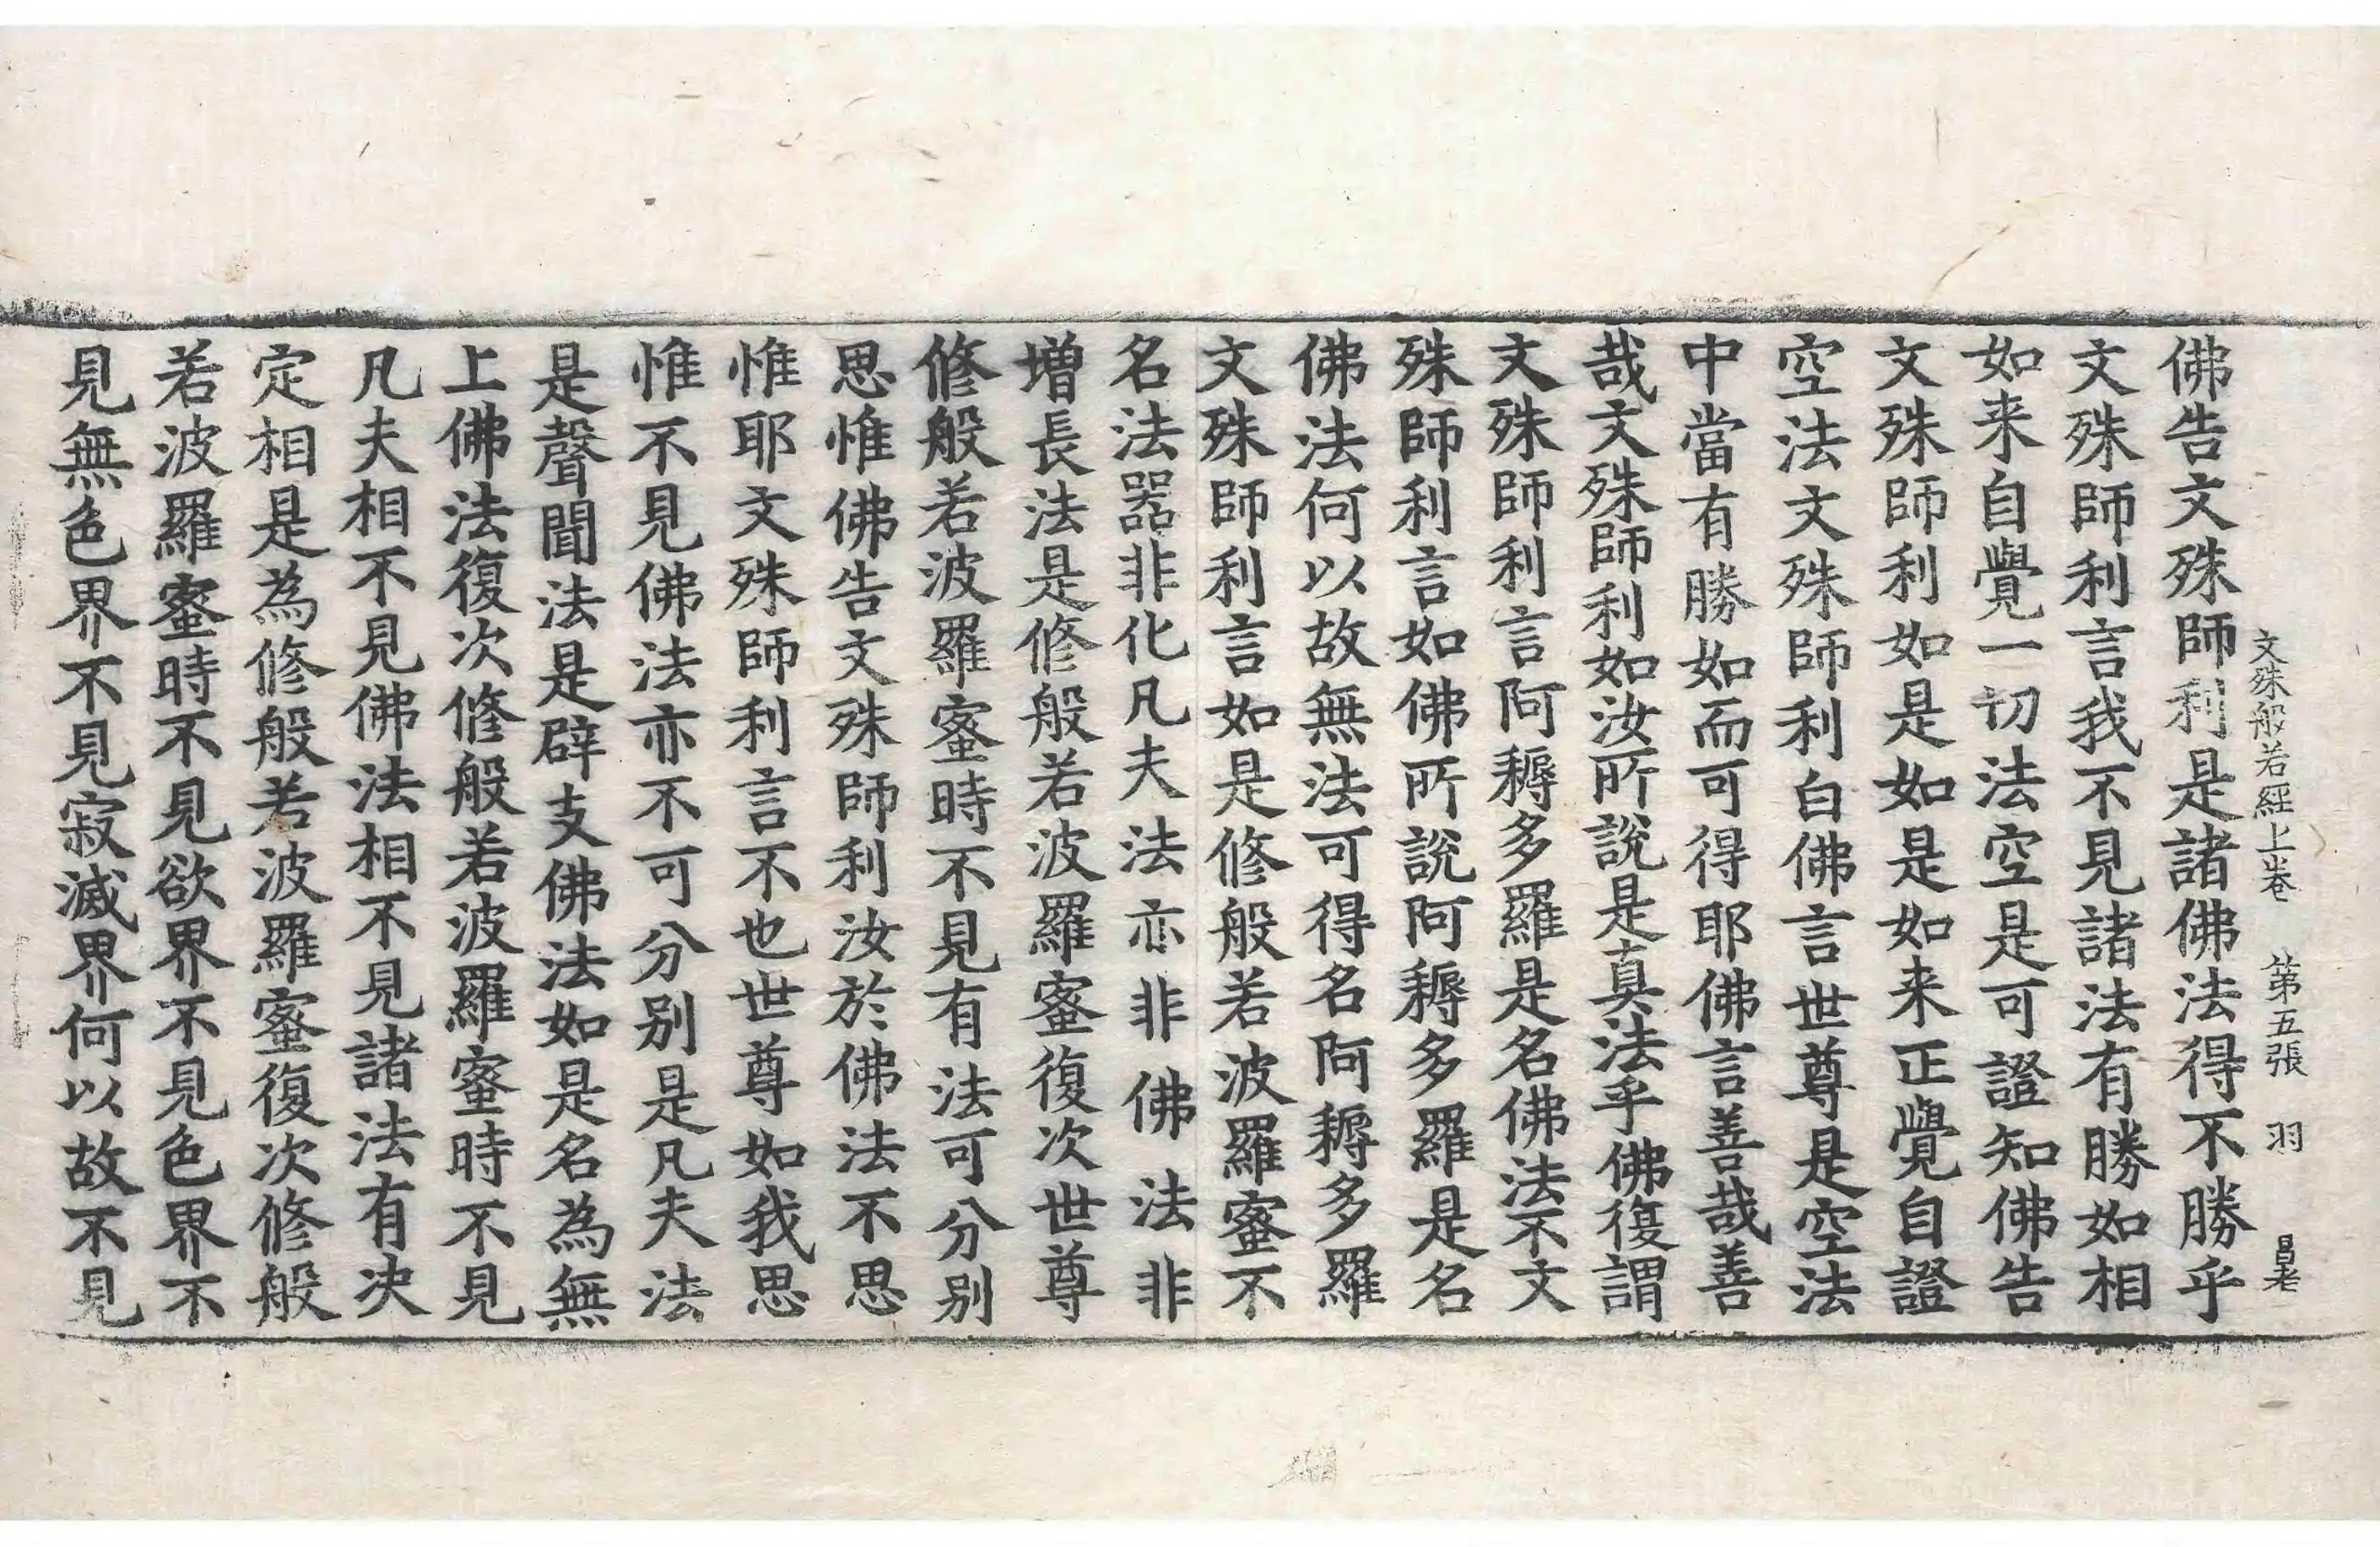 文殊般若經上卷　第五張　羽　昌老
佛告文殊師利是諸佛法得不勝乎
文殊師利言我不見諸法有勝如相
如来自覺一切法空是可證知佛告
文殊師利如是如是如来正覺自證
空法文殊師利白佛言世尊是空法
中當有勝如而可得耶佛言善哉善
哉文殊師利如汝所說是真法乎佛復謂
文殊師利言阿耨多羅是名佛法不文
殊師利言如佛所說阿耨多羅是名
佛法何以故無法可得名阿耨多羅
文殊師利言如是修般若波羅蜜不
名法器非化凡夫法亦非佛法非
增長法是修般若波羅蜜復次世尊
修般若波羅蜜時不見有法可分別
思惟佛告文殊師利汝於佛法不思
惟耶文殊師利言不也世尊如我思
惟不見佛法亦不可分別是凡夫法
是聲聞法是辟支佛法如是名為無
上佛法復次修般若波羅蜜時不見
凡夫相不見佛法相不見諸法有决
定相是為修般若波羅蜜復次修般
若波羅蜜時不見欲界不見色界不
見無色界不見寂滅界何以故不見